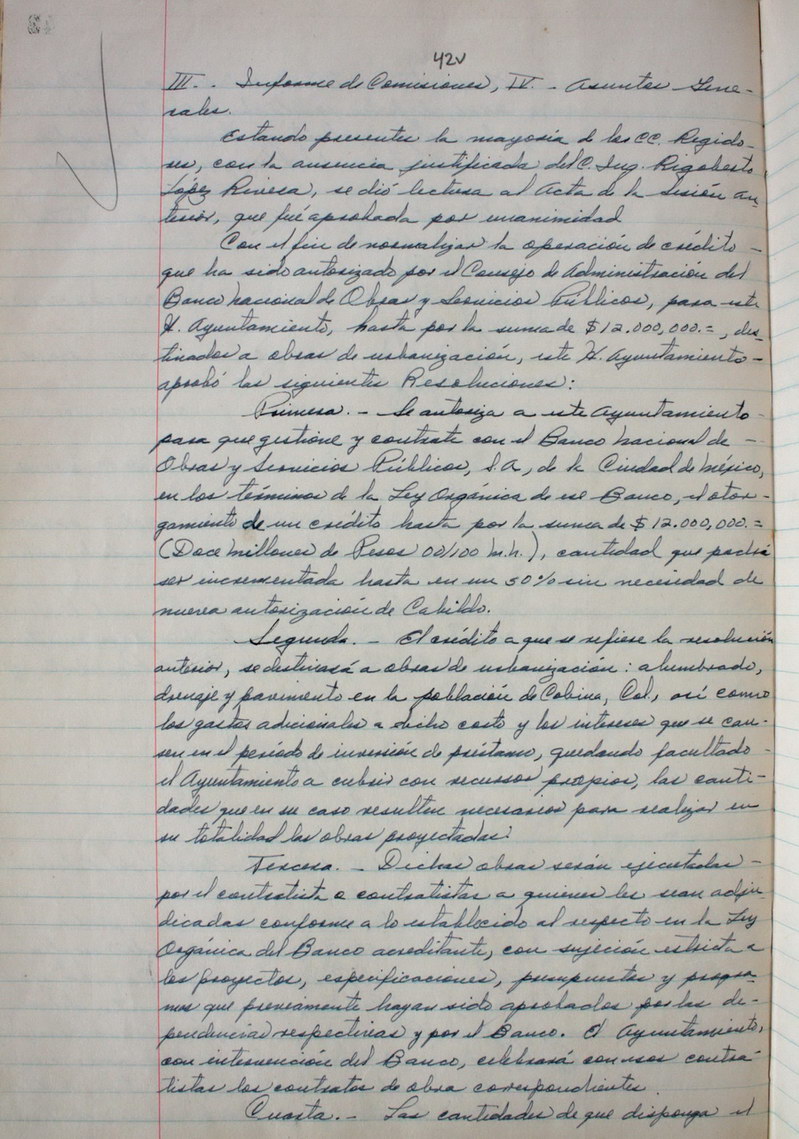 42v
III. - Informe de Comisiones, IV. - Asuntos Gene-
rales.
Estando presentes la mayoría de los CC. Regido-
res, con la ausencia justificada del C. Ing. Rigoberto
López Rivera, se dió lectura al Acta de la Sesión an-
terior, que fué aprobada por unanimidad
Con el fin de normalizar la operación de crédito -
que ha sido autorizado por el Consejo de Administración del
Banco nacional de Obras y Servicios Públicos, para este
H. Ayuntamiento, hasta por la suma de $12.000,000.=, des-
tinados a obras de urbanización, este H. Ayuntamiento -
aprobó las siguientes Resoluciones:
Primera. - Se autoriza a este Ayuntamiento -
para que gestione y contrate con el Banco nacional de -
Obras y Servicios Públicos, S.A., de la Ciudad de México,
en los términos de la Ley Orgánica de ese Banco, el otor-
gamiento de un crédito hasta por la suma de $12.000,000.=
(Doce millones de Pesos 00/100 m.n.), cantidad que podrá
ser incrementada hasta en un 50% sin necesidad de
nueva autorización de Cabildo.
Segunda. - El crédito a que se refiere la resolución
anterior, se destinará a obras de urbanización: alumbrado,
drenaje y pavimento en la población de Colima, Col., así como
los gastos adicionales a dicho costo y los intereses que se cau-
sen en el período de inversión de préstamo, quedando facultado -
el Ayuntamiento a cubrir con recursos propios, las canti-
dades que en su caso resulten necesarios para realizar en
su totalidad las obras proyectadas.
Tercera. - Dichas obras serán ejecutadas -
por el contratista o contratistas a quienes les sean adju-
dicadas conforme a lo establecido al respecto en la Ley
Orgánica del Banco acreditante, con sujeción estricta a
los proyectos, especificaciones, presupuestos y progra-
mas que previamente hayan sido aprobados por las de-
pendencias respectivas y por el Banco. El Ayuntamiento,
con intervención del Banco, celebrará con esos contra-
tistas los contratos de obra correspondientes.
Cuarta. - Las cantidades de que disponga el